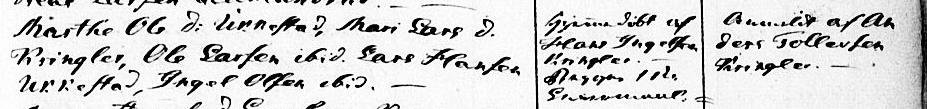 Marthe Ols d: Urnestad, Mari Lars d.
Kringler, Ole Larsen ibid. Lars Hansen
Urnestad, Ingel Olsen ibid. —
Hjemmedøbt af
Hans Ingelsen
Kringler.
Anmeldt af An
ders Tollevsen
Kringler. —